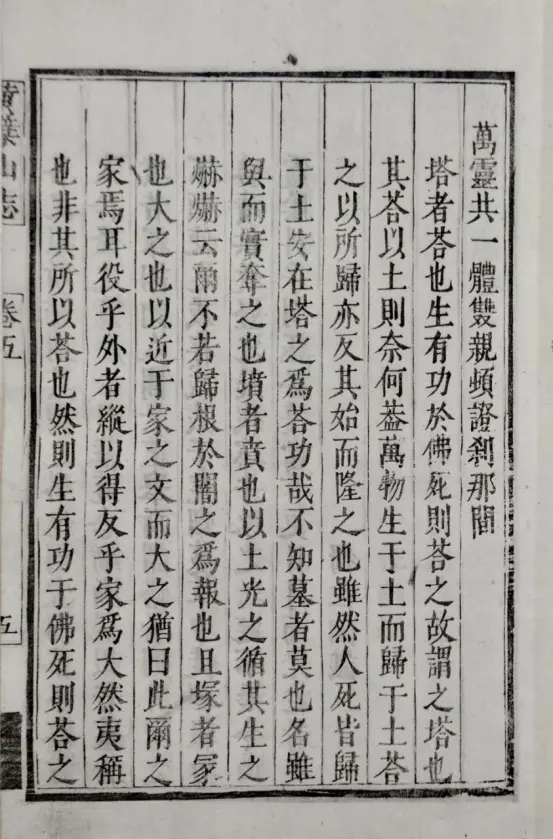 萬靈共一體雙親頓證剎那間
塔者荅也生有功於佛死則荅之故謂之塔也
其荅以土則奈何葢萬物生于土而歸于土荅
之以所歸亦反其始而隆之也雖然人死皆歸
于土安在塔之爲荅功哉不知墓者莫也名雖
與而實奪之也墳者賁也以土光之循其生之
赫赫云爾不若歸根於闇之爲報也且塚者冢
也大之也以近于家之文而大之猶曰此爾之
家焉耳役乎外者縱以得反乎家爲大然夷稱
也非其所以荅也然則生有功于佛死則荅之
黃檗山志
卷五
五